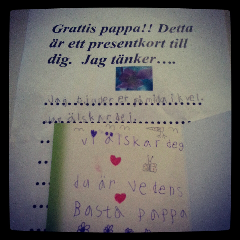 Grattis pappa!! Detta
är ett presentkort till
dig. Jag tänker....
Jag
jag älskar dej.
vi älskar deg
du är vedens
Bästa pappa